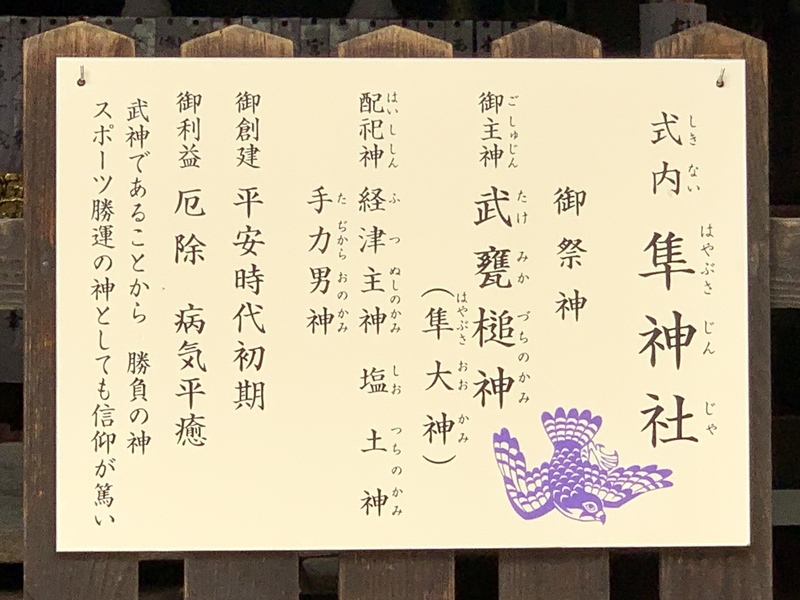 式内 隼神社
しき ない はやぶさ じん じゃ
御祭神
御主神 武甕槌神
ご しゅじん たけ みか づちのかみ
(隼大神)
はやぶさ おお かみ
配祀神 経津主神 塩土神
はい し しん ふ つ ぬしのかみ しお つち の かみ
手力男神
た ぢから おのかみ
御創建 平安時代初期
御利益 厄除 病気平癒
武神であることから 勝負の神
スポーツ勝運の神としても信仰が篤い